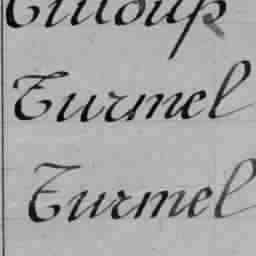 Turmel
Turmel